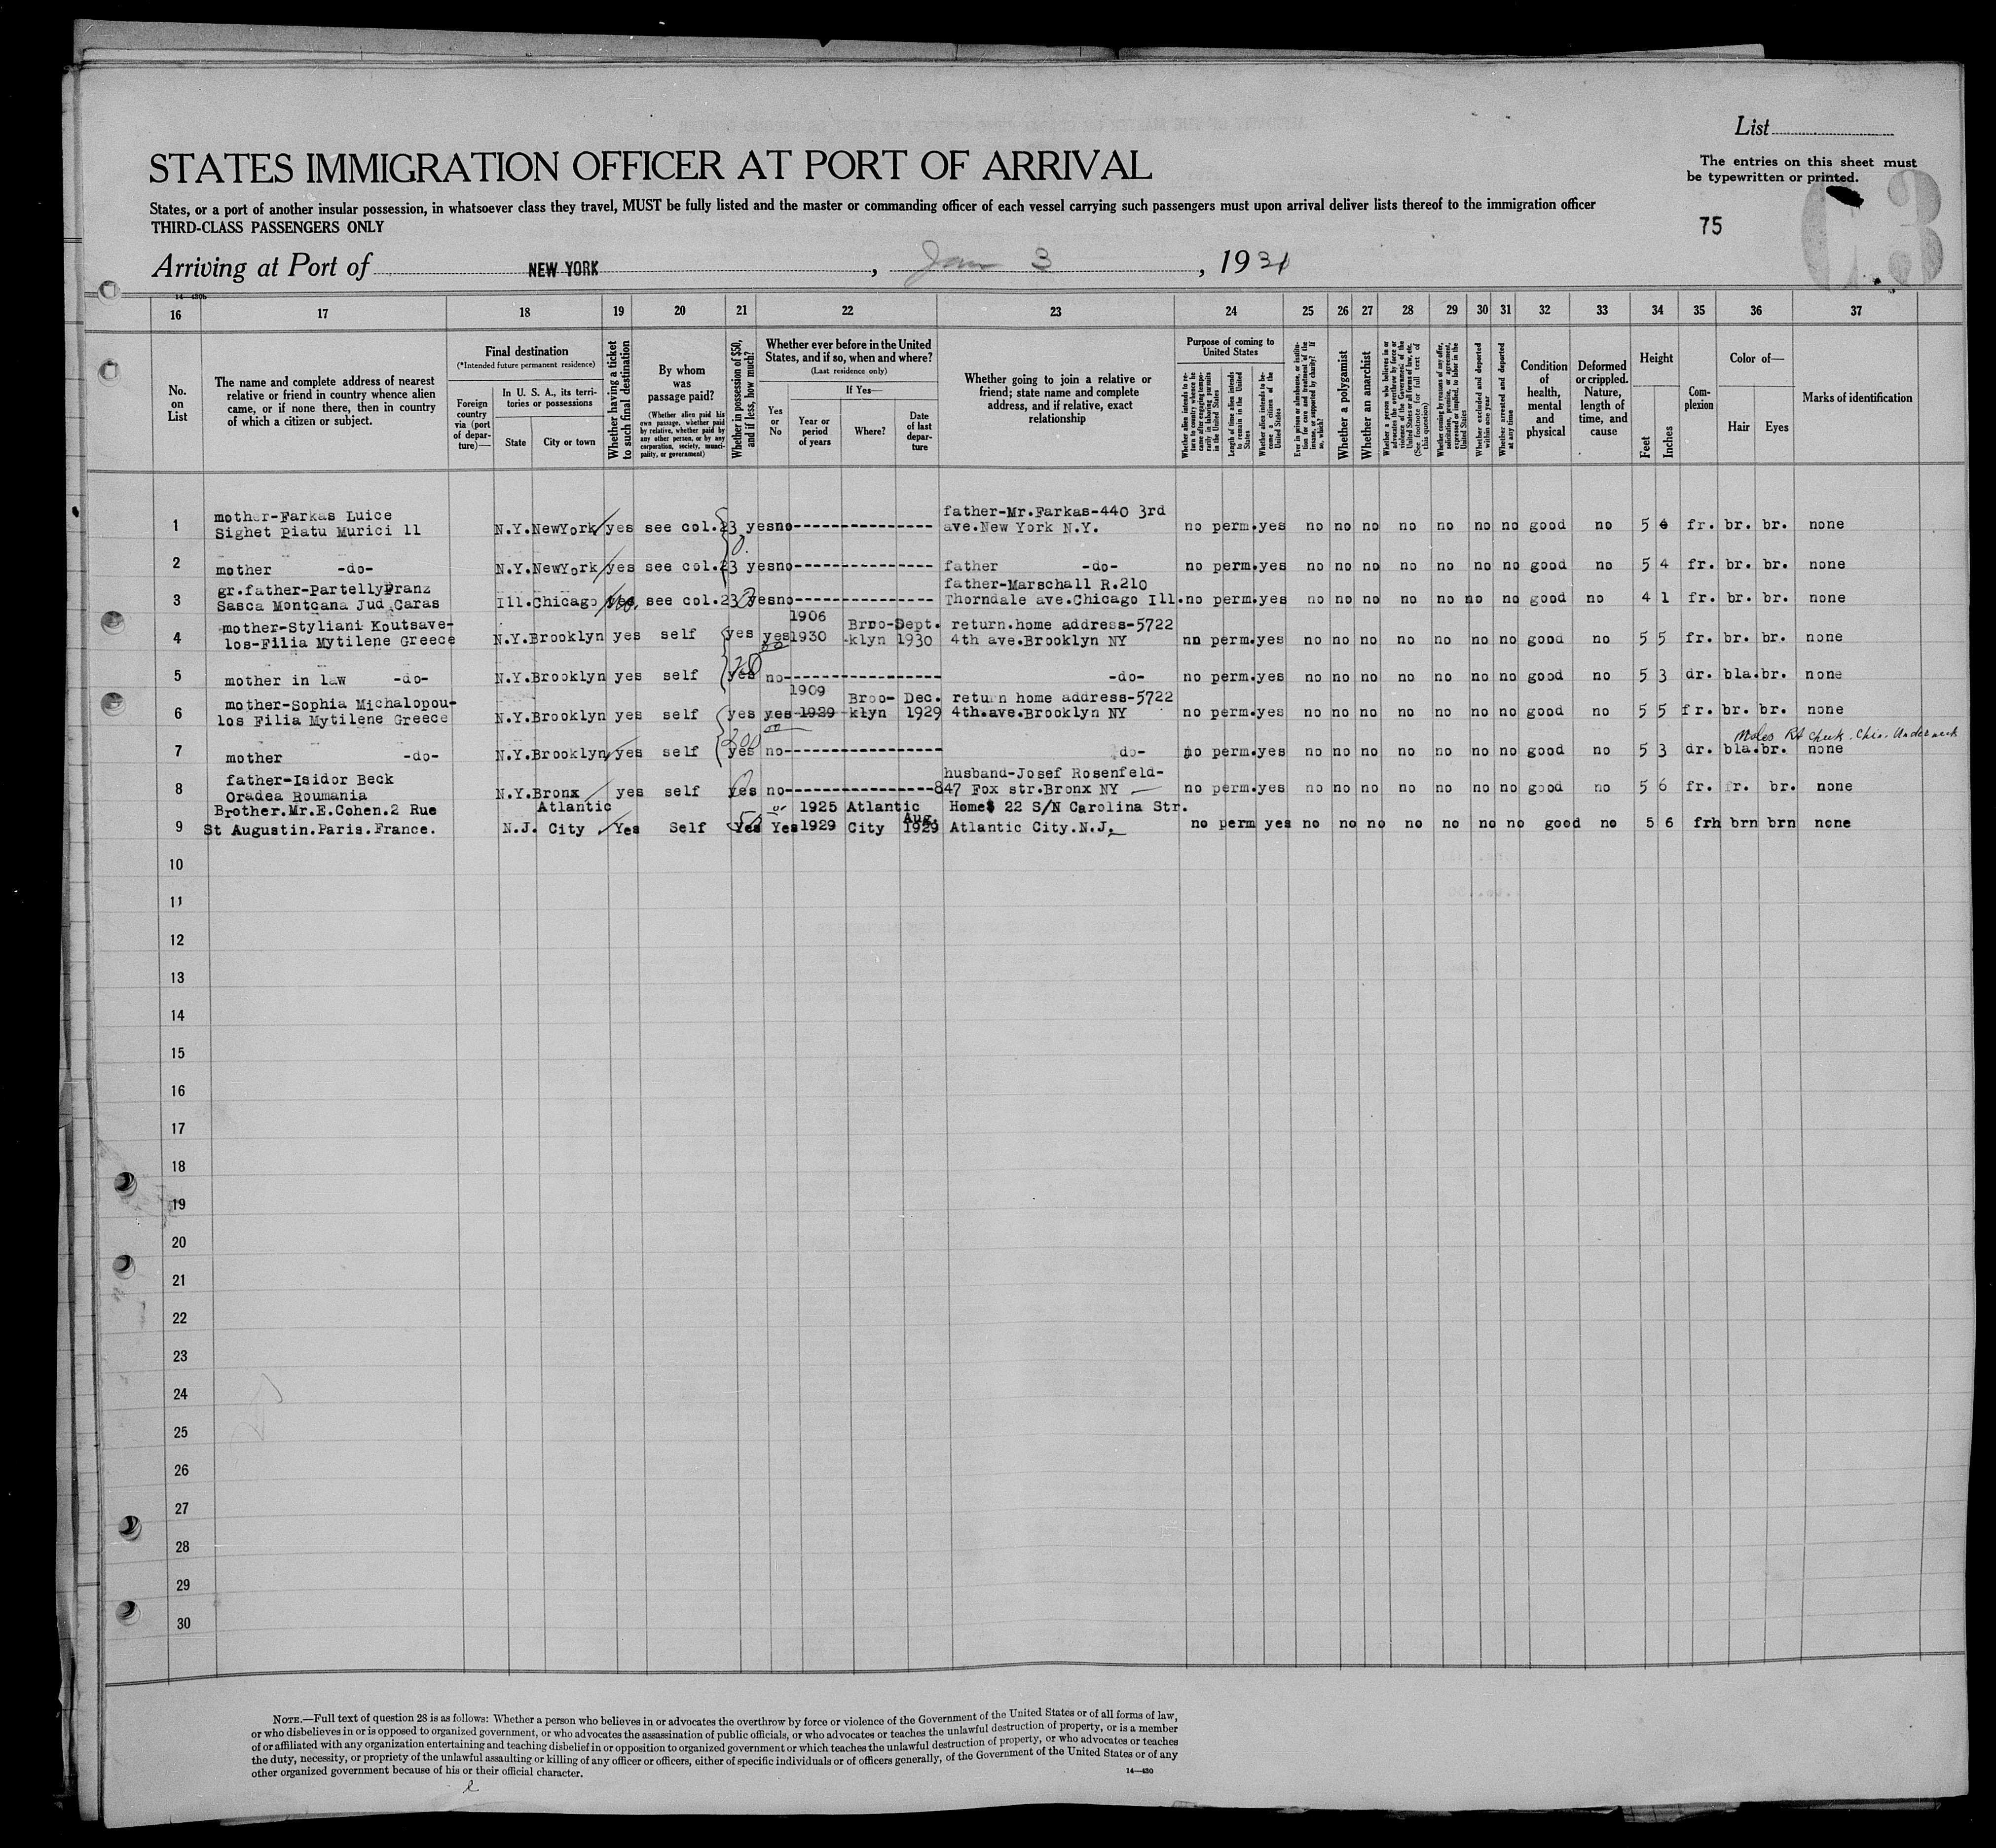 List
STATES IMMIGRATION OFFICER AT PORT OF ARRIVAL
The entries on this sheet must
be typewritten or printed.
States, or a port of another insular possession, in whatsoever class they travel, MUST be fully listed and the master or commanding officer of each vessel carrying such passengers must upon arrival deliver lists thereof to the immigration officer
THIRD-CLASS PASSENGERS ONLY
75
63
Arriving at Port of NEW YORK, Jan 3, 1931
14—430b
16 17 18 19 20 21 22 23 24 25 26 27 28 29 30 31 32 33 34 35 36 37
No. on List
The name and complete address of nearest relative or friend in country whence alien came, or if none there, then in country of which a citizen or subject.
Final destination
(*Intended future permanent residence)
Foreign country via (port of departure)—
In U. S. A., its territories or possessions
State
City or town
Whether having a ticket to such final destination
By whom was passage paid?
(Whether alien paid his own passage, whether paid by relative, whether paid by any other person, or by any corporation, society, municipality, or government)
Whether in possession of $50, and if less, how much?
Whether ever before in the United States, and if so, when and where?
(Last residence only)
Yes or No
If Yes—
Year or period of years
Where?
Date of last departure
Whether going to join a relative or friend; state name and complete address, and if relative, exact relationship
Purpose of coming to United States
Whether alien intends to return to country whence he came after engaging temporarily in laboring pursuits in the United States
Length of time alien intends to remain in the United States
Whether alien intends to become a citizen of the United States
Ever in prison or almshouse, or institution for care and treatment of the insane, or supported by charity? If so, which?
Whether a polygamist
Whether an anarchist
Whether a person who believes in or advocates the overthrow by force or violence of the Government of the United States or all forms of law, etc. (See footnote for full text of this question)
Whether coming by reasons of any offer, solicitation, promise, or agreement, expressed or implied, to labor in the United States
Whether excluded and deported within one year
Whether arrested and deported at any time
Condition of health, mental and physical
Deformed or crippled. Nature, length of time, and cause
Height
Feet
Inches
Complexion
Color of—
Hair
Eyes
Marks of identification
mother-Farkas Luice father-Mr.Farkas-440 3rd
1 Sighet Piatu Murici 11 N.Y.NewYork yes see col.23 yes no---------------- ave.New York N.Y. no perm.yes no no no no no no no good no 5 fr. br. br. none
0.
2 mother -do- N.Y.NewYork yes see col.23 yes no---------------- father -do- no perm.yes no no no no no no no good no 5 4 fr. br. br. none
gr.father-Partelly Franz father-Marschall R.210
3 Sasca Montcana Jud.Caras Ill.Chicago yes No. see col.23 0 yes no---------------- Thorndale ave.Chicago Ill. no perm.yes no no no no no no no good no 4 1 fr. br. br. none
mother-Styliani Koutsave- 1906 Broo- Sept. return.home address-5722
4 los-Filia Mytilene Greece N.Y.Brooklyn yes self yes yes 1930 -klyn 1930 4th ave.Brooklyn NY no perm.yes no no no no no no no good no 5 5 fr. br. br. none
5 mother in law -do- N.Y.Brooklyn yes self yes no---------------- -do- no perm.yes no no no no no no no good no 5 3 dr. bla.br. none
mother-Sophia Michalopou- 1909 Broo- Dec. return home address-5722
6 los Filia Mytilene Greece N.Y.Brooklyn yes self yes yes 1929 klyn 1929 4th.ave.Brooklyn NY no perm.yes no no no no no no no good no 5 5 fr. br. br. none
200 00
Moles Rt Cheek. Chin. Underneck
7 mother -do- N.Y.Brooklyn yes self yes no---------------- do- no perm.yes no no no no no no no good no 5 3 dr. bla.br. none
father-Isidor Beck husband-Josef Rosenfeld-
8 Oradea Roumania N.Y.Bronx yes self yes 0 no---------------- 847 Fox str.Bronx NY no perm.yes no no no no no no no good no 5 6 fr. fr. br. none
Brother.Mr.E.Cohen.2 Rue Atlantic 1925 Atlantic Aug. Home 22 S/N Carolina Str.
9 St Augustin.Paris.France. N.J. City Yes Self Yes 50 Yes 1929 City 1929 Atlantic City.N.J. no perm yes no no no no no no no good no 5 6 frh brn brn none
10
11
12
13
14
15
16
17
18
19
20
21
22
23
24
25
26
27
28
29
30
NOTE.—Full text of question 28 is as follows: Whether a person who believes in or advocates the overthrow by force or violence of the Government of the United States or of all forms of law,
or who disbelieves in or is opposed to organized government, or who advocates the assassination of public officials, or who advocates or teaches the unlawful destruction of property, or is a member
of or affiliated with any organization entertaining and teaching disbelief in or opposition to organized government or which teaches the unlawful destruction of property, or who advocates or teaches
the duty, necessity, or propriety of the unlawful assaulting or killing of any officer or officers, either of specific individuals or of officers generally, of the Government of the United States or of any
other organized government because of his or their official character.
14—430